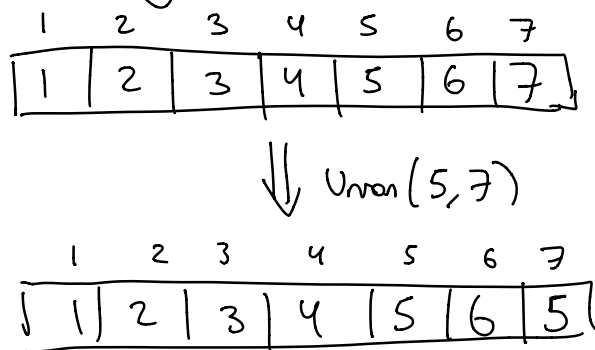 1 2 3 4 5 6 7
1 2 3 4 5 6 7
(5,7)
1 2 3 4 5 6 7
1 2 3 4 5 6 5